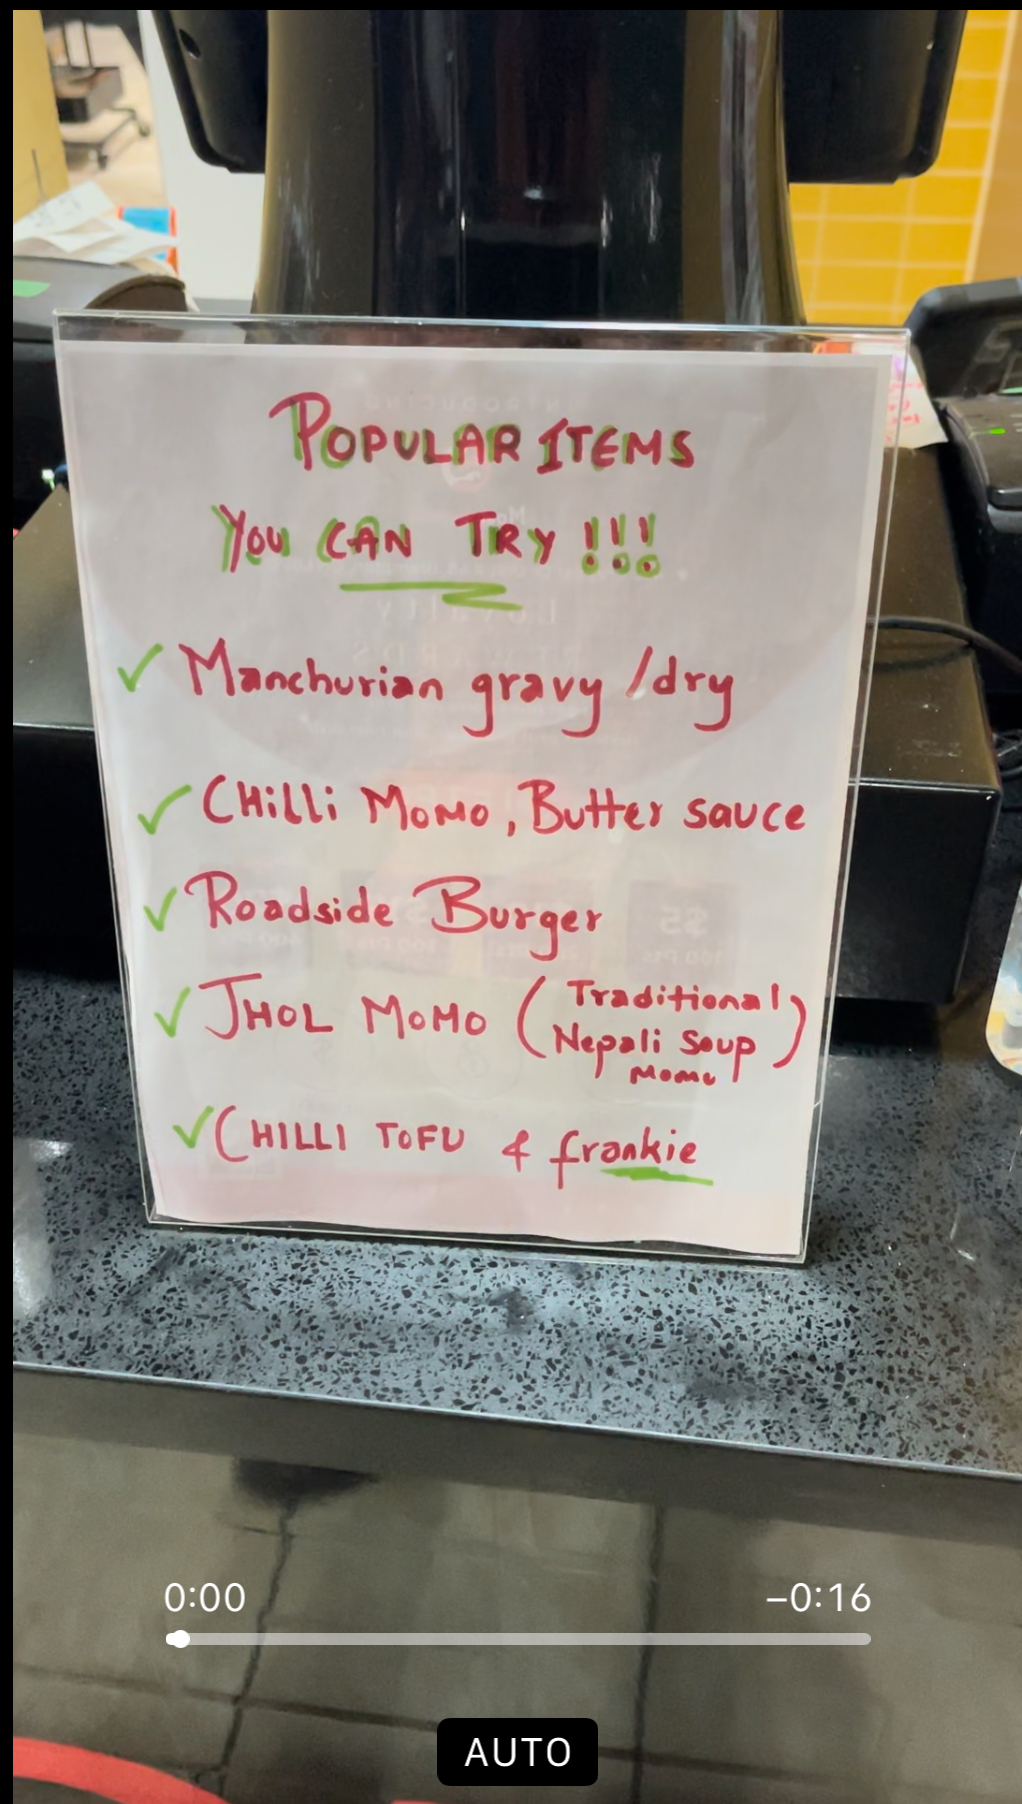 POPULAR ITEMS
YOU CAN TRY !!!
✓ Manchurian gravy / dry
✓ CHilli MoMo, Butter sauce
✓ Roadside Burger
✓ JHOL MoMo ( Traditional
Nepali Soup
Momo )
✓ CHILLI ToFU & frankie
0:00
–0:16
AUTO